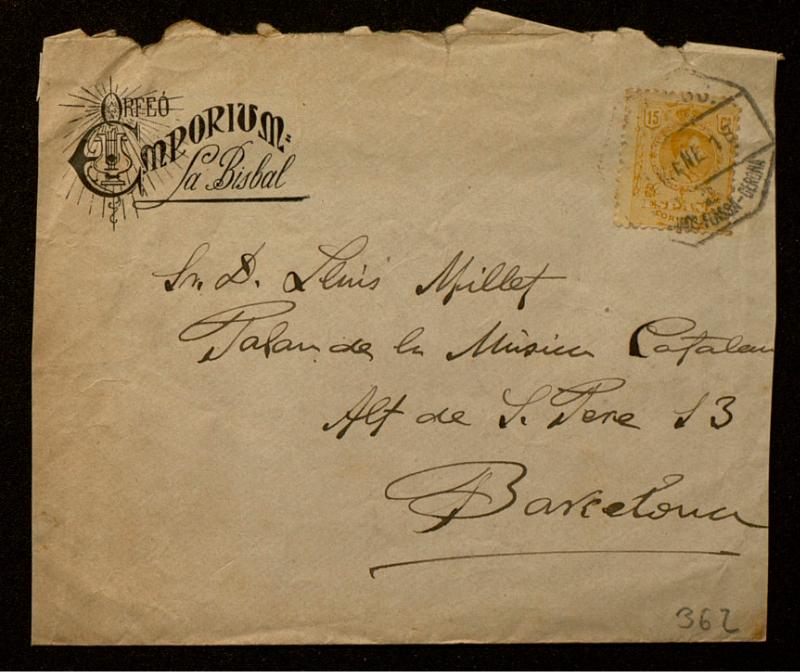 ORFEÓ
EMPORIUM=
La Bisbal
15
ENE 1
FLASSÁ-GERONA
Sr. D. Lluis Millet
Palau de la Música Catalan
Alt de S. Pere 13
Barcelona
362